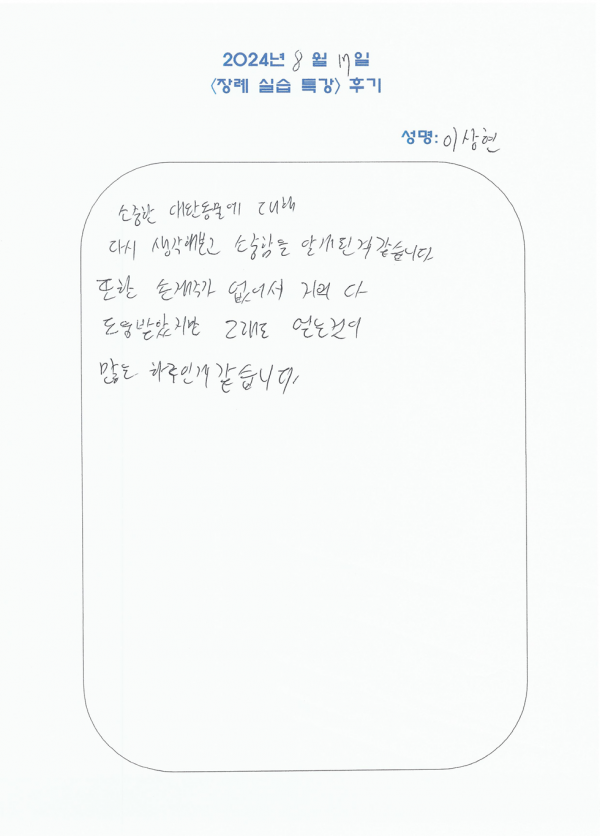 2024년 8 월 17일
〈장례 실습 특강〉 후기
성명: 이상현
소중한 애완동물에 대해
다시 생각해보고 소중함을 알게된거같습니다
또한 손재주가 없어서 거의 다
도움받았지만 그래도 얻는것이
많은 하루인게 같습니다,